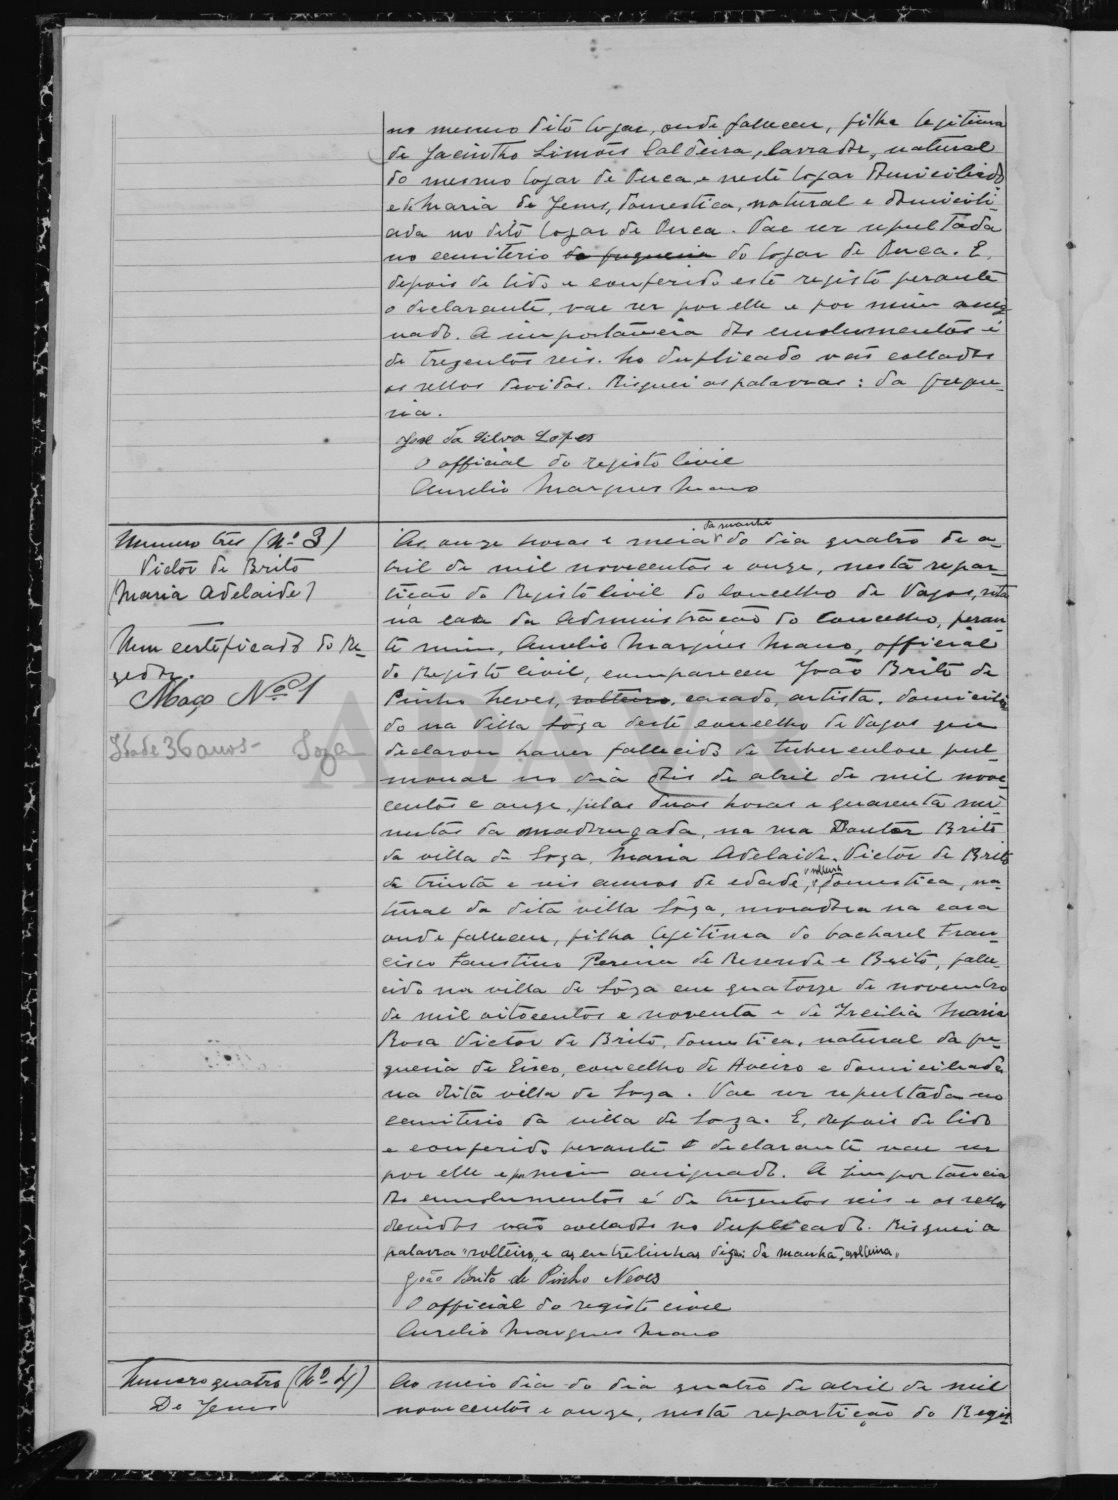 no mesmo dito logar, onde falleceu, filha legitima
de Jacintho Simões Caldeira, lavrador, natural
do mesmo logar de Ouca e neste logar domiciliado
e de Maria de Jesus, domestica, natural e domicili-
ada no dito logar de Ouca. Vae ser sepultada
no cemiterio da freguesia do logar de Ouca. E,
depois de lido e conferido este registo perante
o declarante, vae ser por elle e por mim assig-
nado. A importancia dos emolumentos é
de trezentos reis. No duplicado vão collados
os sellos devidos. Risquei as palavras: da fregue-
sia.
José da Silva Lopes
O official do registo civil
Aurelio Marques Mano
Numero três (Nº 3)
Victor de Brito
(Maria Adelaide)
Um certificado do Re-
gedor.
Maço Nº 1
Idade 36 anos - Soza
Ás onze horas e meia da manhã do dia quatro de a-
bril de mil novecentos e onze, nesta repar-
tição do Registo Civil do Concelho de Vagos, sita
na casa da Administração do Concelho, peran-
te mim, Aurelio Marques Mano, official
do Registo Civil, compareceu João Brito de
Pinho Neves, solteiro, casado, artista, domicilia-
do na Villa Sôza deste concelho de Vagos que
declarou haver fallecido de tuberculose pul-
monar no dia dois de abril de mil nove-
centos e onze, pelas duas horas e quarenta mi-
nutos da madrugada, na rua Doutor Brito
da villa de Soza, Maria Adelaide Victor de Brito
de trinta e seis annos de edade, solteira, domestica, na-
tural da dita villa Sôza, moradora na casa
onde falleceu, filha legitima do bacharel Fran-
cisco Faustino Pereira de Resende e Brito, falle-
cido na villa de Sôza em quatorze de novembro
de mil oitocentos e noventa e de Maria
Rosa Victor de Brito, domestica, natural da fre-
guesia de Eixo, concelho de Aveiro e domiciliada
na dita villa de Soza. Vae ser sepultada no
cemiterio da villa de Soza. E, depois de lido
e conferido perante o declarante vae ser
por elle e por mim assignado. A importancia
dos emolumentos é de trezentos reis e os sellos
devidos vão collados no duplicado. Risquei a
palavra "solteiro" e as entrelinhas digo: da manhã, solteira.
João Brito de Pinho Neves
O official do registo civil
Aurelio Marques Mano
Numero quatro (Nº 4)
De Jesus
Ao meio dia do dia quatro de abril de mil
novecentos e onze, nesta repartição do Regis-